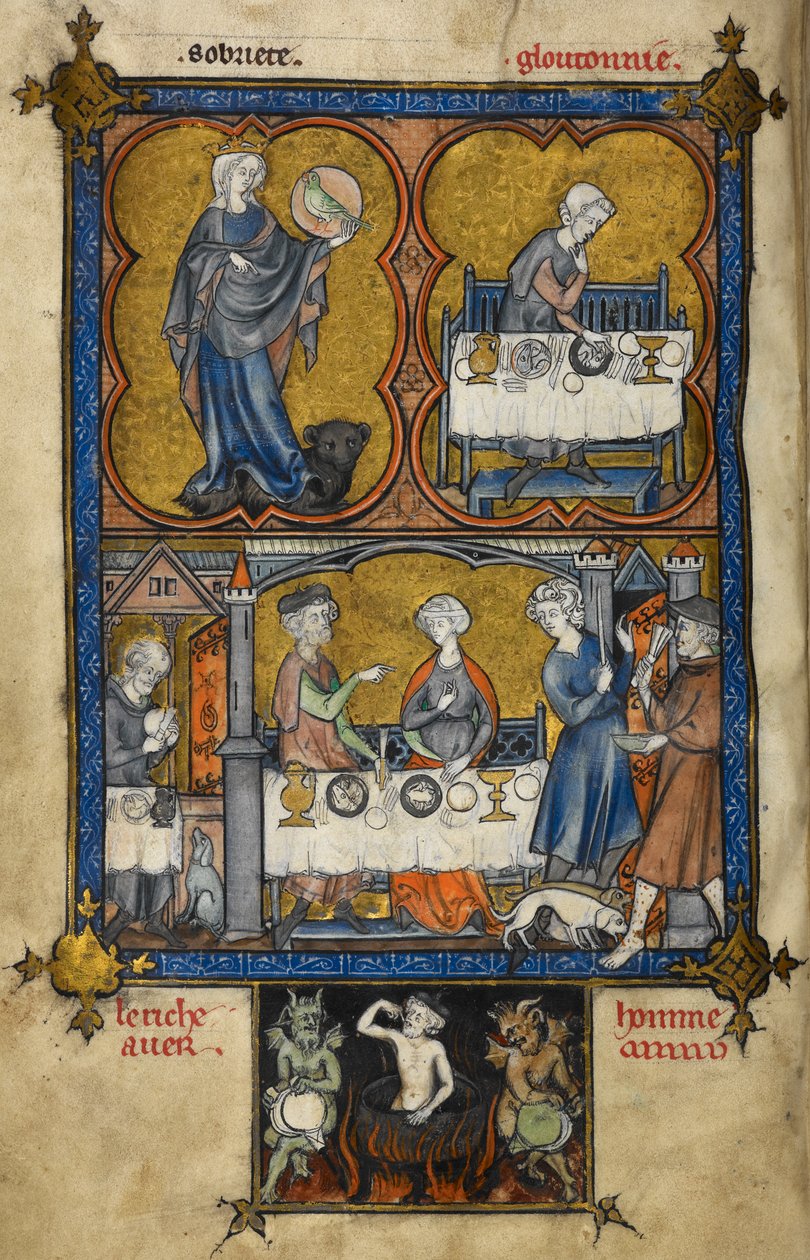 .sobriete.
.gloutonnie.
le riche
homme
auer.